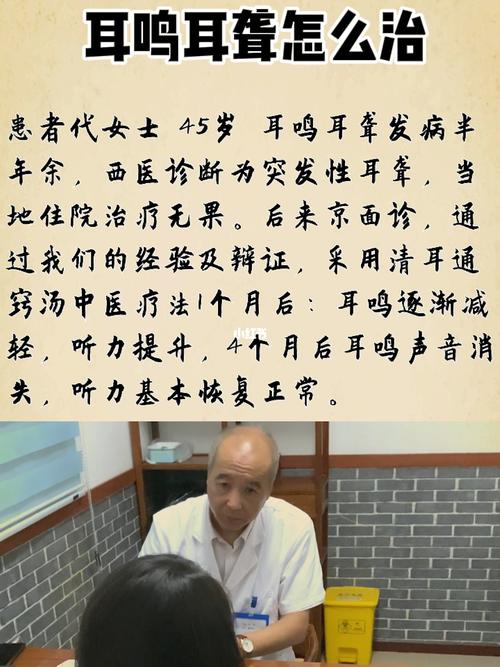 耳鸣耳聋怎么治
患者代女士 45岁 耳鸣耳聋发病半
年余，西医诊断为突发性耳聋，当
地住院治疗无果。后来京面诊，通
过我们的经验及辩证，采用清耳通
窍汤中医疗法1个月后：耳鸣逐渐减
轻，听力提升，4个月后耳鸣声音消
失，听力基本恢复正常。
小红书